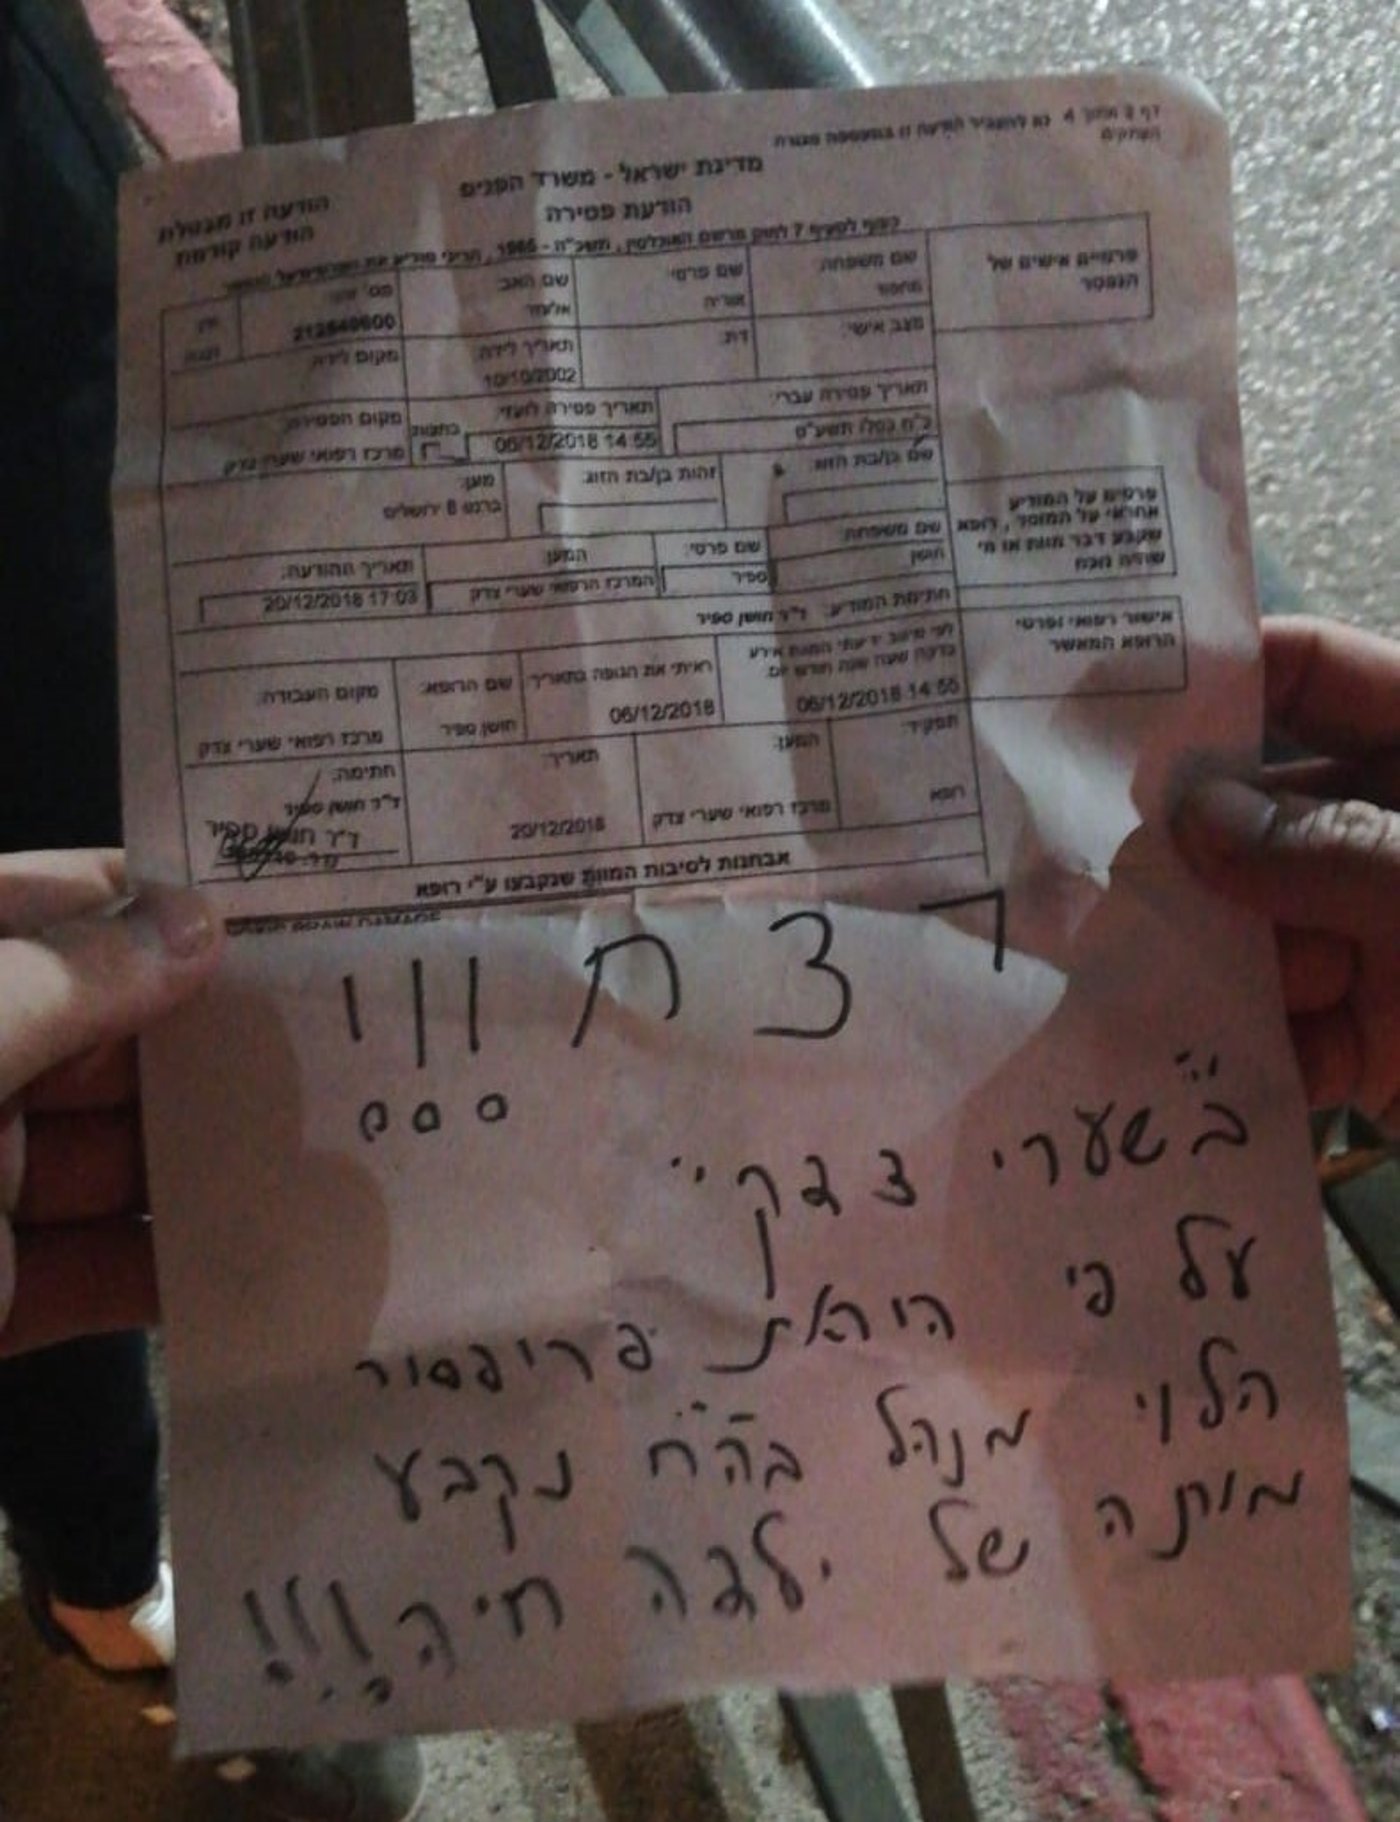 דף 3 מתוך 4 נא להעביר הודעה זו במעטפה סגורה
העתקים
מדינת ישראל - משרד הפנים
הודעת פטירה
הודעה זו מבטלת
הודעה קודמת
כפוף לסעיף 7 לחוק מרשם האוכלוסין, תשכ"ה - 1965, הריני מודיע את
פרטיים אישים של
הנפטר
שם משפחה: שם פרטי: שם האב: מס' זהות:
אוריה
מצב אישי: דת: תאריך לידה: מקום לידה:
10/10/2002
תאריך פטירה עברי: תאריך פטירה לועזי: מקום הפטירה:
כ"ח כסלו תשע"ט 06/12/2018 14:55 מרכז רפואי שערי צדק
שם בן/בת הזוג: זהות בן/בת הזוג: מען:
8 ירושלים
פרטים על המודיע
אחראי על המוסד, רופא
שקבע דבר מוות או מי
שהיה נוכח
שם משפחה: שם פרטי: המען: תאריך ההודעה:
חושן ספיר המרכז הרפואי שערי צדק 20/12/2018 17:03
חתימת המודיע: ד"ר חושן ספיר
אישור רפואי ופרטי
הרופא המאשר
לפי מיטב ידיעתי המוות אירע
בדקה שעה שנה חודש יום: ראיתי את הגופה בתאריך: שם הרופא: מקום העבודה:
06/12/2018 14:55 06/12/2018 חושן ספיר מרכז רפואי שערי צדק
תפקיד: המען: תאריך: חתימה:
רופא מרכז רפואי שערי צדק 20/12/2018 ד"ר חושן ספיר
ד"ר חושן ספיר
אבחנות לסיבות המוות שנקבעו ע"י רופא
רצח !!!
"בשערי צדק"
על פי הוראת פרופסור
הלוי מנהל בה"ח נקבע
מותה של ילדה חיה!!!